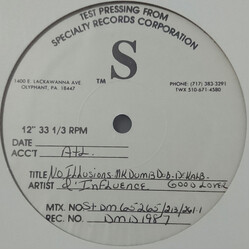 TEST PRESSING FROM
SPECIALTY RECORDS CORPORATION
S
TM
1400 E. LACKAWANNA AVE
OLYPHANT, PA. 18447
PHONE: (717) 383-3291
TWX 510-671-4580
12" 33 1/3 RPM
DATE
ACC'T Atl.
TITLE No Illusions. MK Dumb Dub. DeKalb.
ARTIST d'Influence GOOD LOVER
MTX. NO. St DM 65265/
REC. NO. DMD 1987